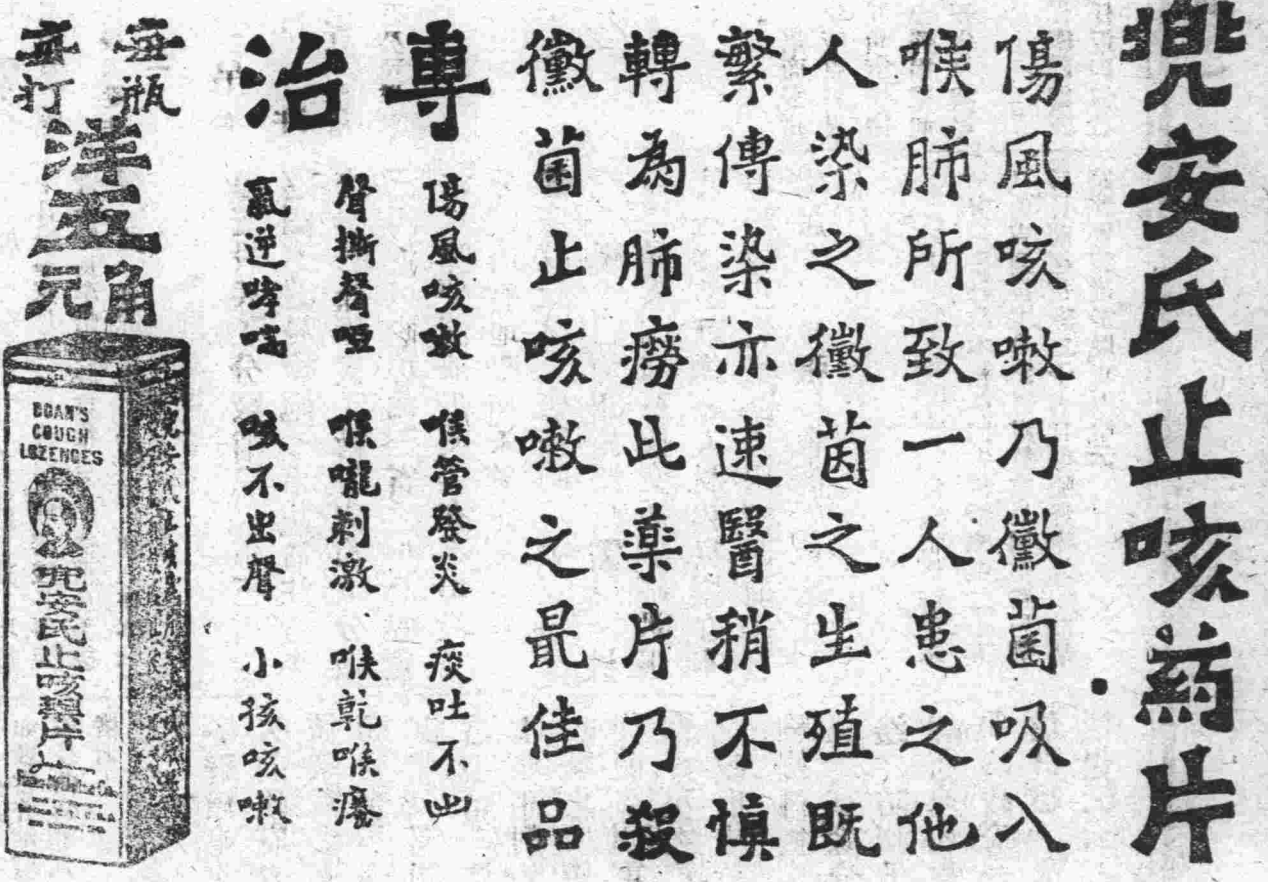 兜安氏止咳药片
傷風咳嗽乃黴菌吸入
喉肺所致一人患之他
人染之黴菌之生殖既
繁傳染亦速醫稍不慎
轉為肺癆此藥片乃殺
黴菌止咳嗽之最佳品
專治
傷風咳嗽 喉管發炎 痰吐不出
聲撕聲啞 喉嚨刺激 喉乾喉癢
氣逆哮喘 咳不出聲 小孩咳嗽
每瓶
每打
洋五
角
元
DOAN'S
COUGH
LOZENGES
兜安氏止咳
片